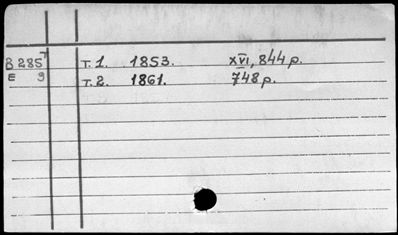 B 285 T т. 1. 1853. XVI, 844 p.
E 9 т. 2. 1861. 748 p.